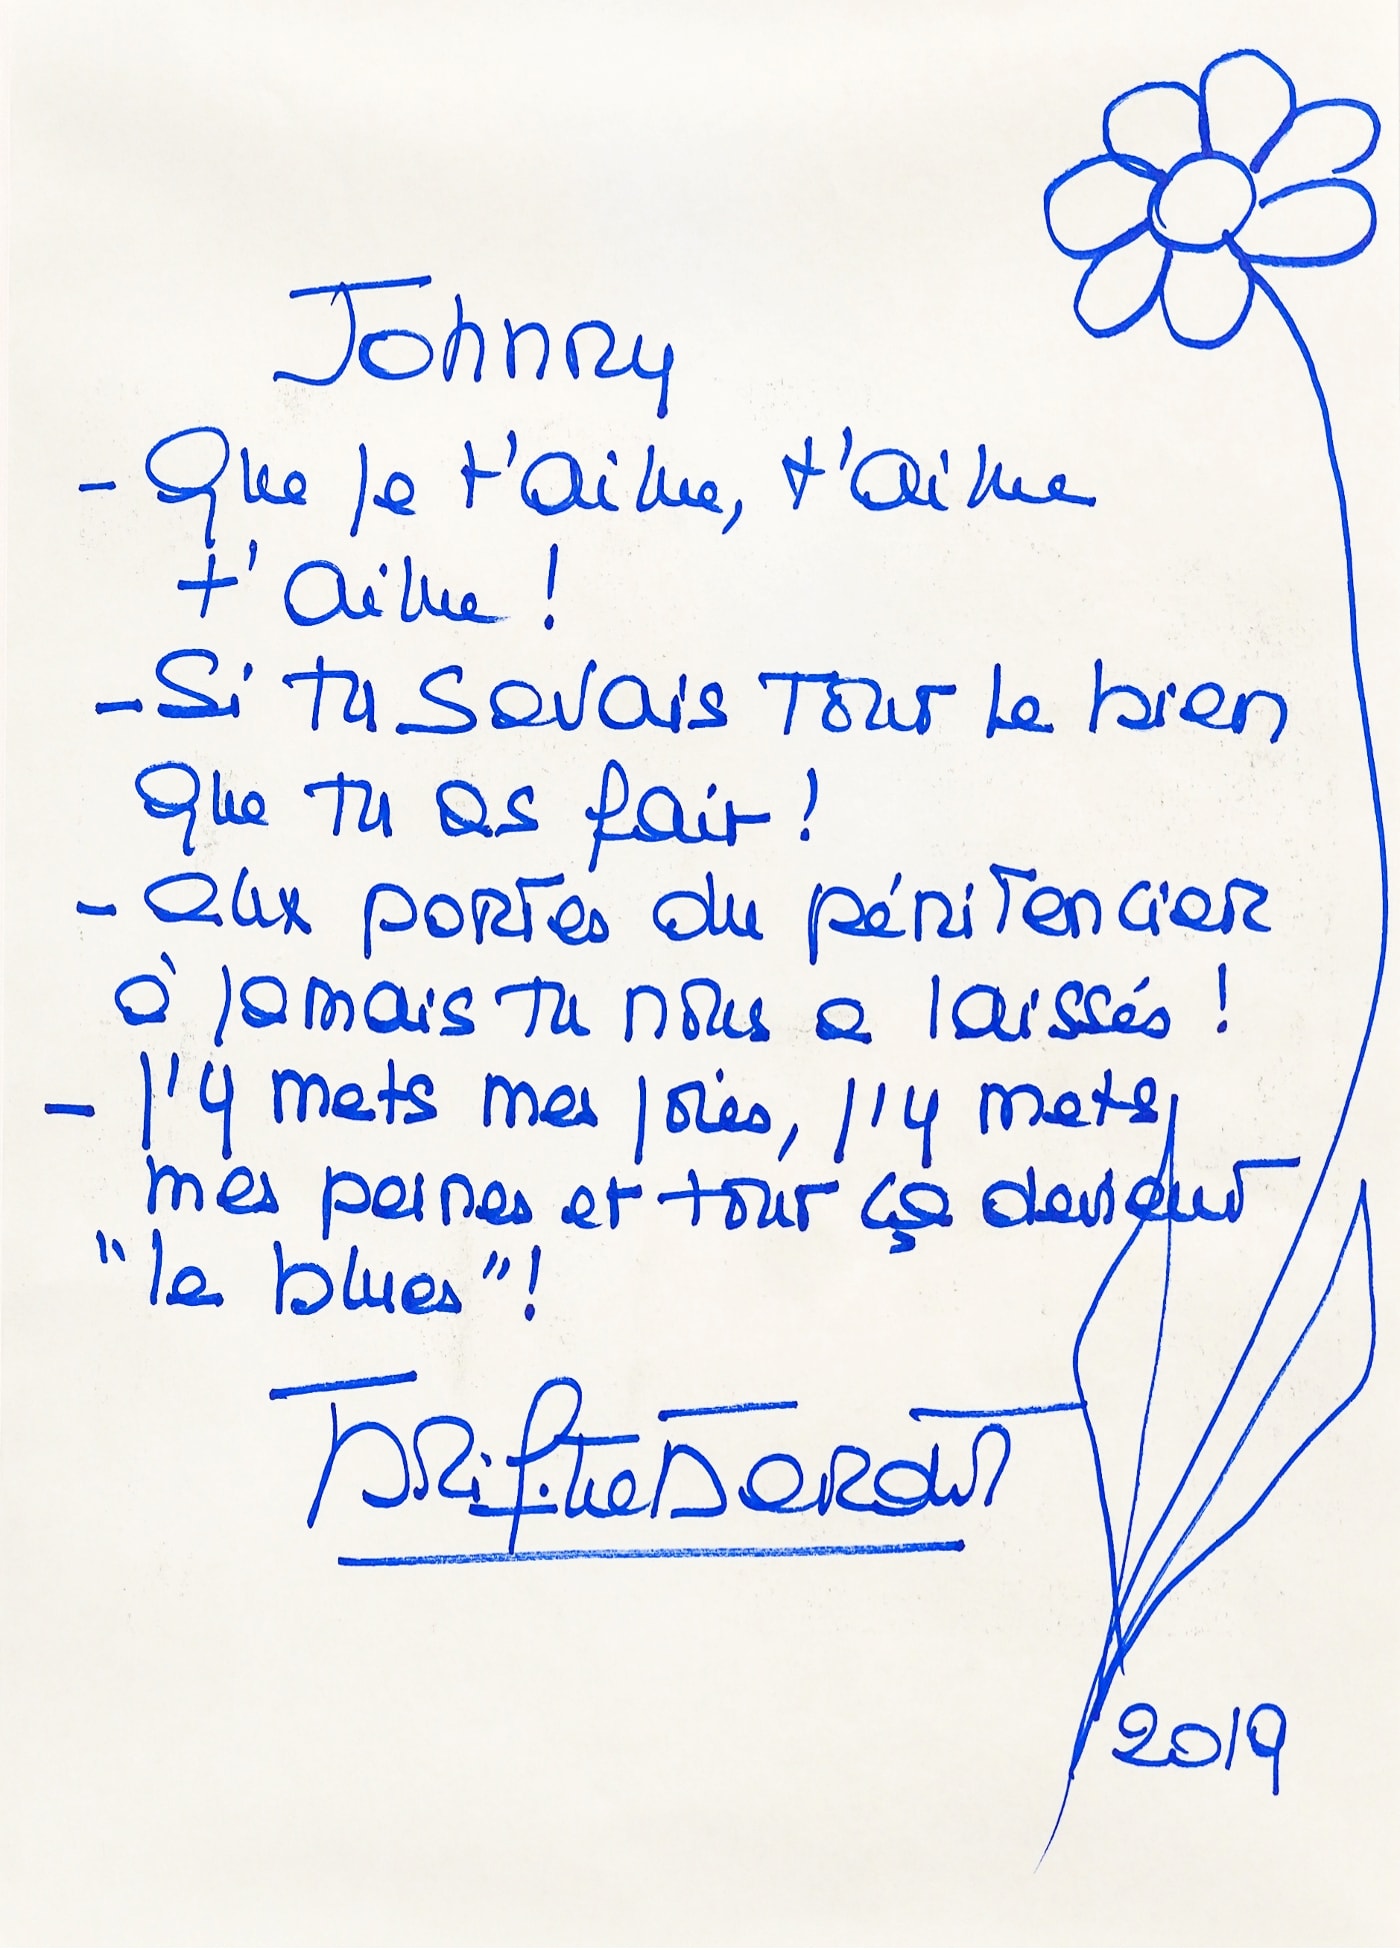 Johnny
- Que je t'aime, t'aime
t'aime !
- Si tu savais tout le bien
que tu as fait !
- aux portes du pénitencier
à jamais tu nous a laissés !
- j'y mets mes joies, j'y mets
mes peines et tout ça devient
"le blues" !
Brigitte Bardot
2019